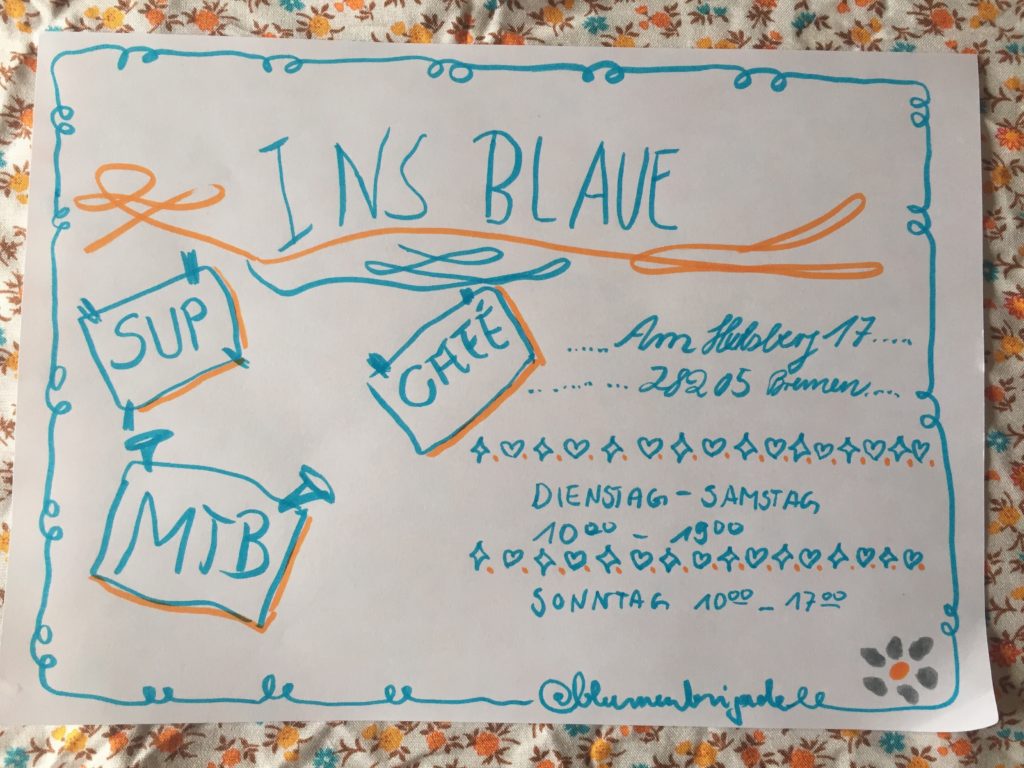 INS BLAUE
SUP
CAFÉ
MTB
Am Hulsberg 17
28205 Bremen
DIENSTAG - SAMSTAG
10 00 - 19 00
SONNTAG 10 00 - 17 00
@blumenbrigade